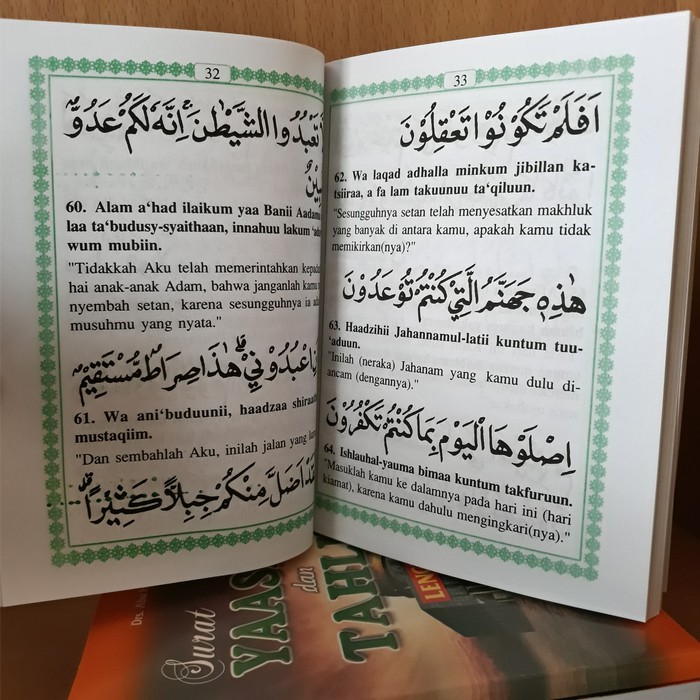 32
تَعْبُدُوا الشَّيْطٰنَ ۚ اِنَّهٗ لَكُمْ عَدُوٌّ
60. Alam a‘had ilaikum yaa Banii Aadama
laa ta‘budusy-syaithaan, innahuu lakum
wum mubiin.
"Tidakkah Aku telah memerintahkan
hai anak-anak Adam, bahwa janganlah kamu
nyembah setan, karena sesungguhnya ia
musuhmu yang nyata."
اعْبُدُوْنِيْ ۗ هٰذَا صِرَاطٌ مُّسْتَقِيْمٌ
61. Wa ani‘buduunii, haadzaa
mustaqiim.
"Dan sembahlah Aku, inilah jalan yang
اَضَلَّ مِنْكُمْ جِبِلًّا كَثِيْرًا ۗ
33
اَفَلَمْ تَكُوْنُوْا تَعْقِلُوْنَ
62. Wa laqad adhalla minkum jibillan ka-
tsiiraa, a fa lam takuunuu ta‘qiluun.
"Sesungguhnya setan telah menyesatkan makhluk
yang banyak di antara kamu, apakah kamu tidak
memikirkan(nya)?"
هٰذِهٖ جَهَنَّمُ الَّتِيْ كُنْتُمْ تُوْعَدُوْنَ
63. Haadzihii Jahannamul-latii kuntum tuu-
‘aduun.
"Inilah (neraka) Jahanam yang kamu dulu di-
ancam (dengannya)."
اِصْلَوْهَا الْيَوْمَ بِمَا كُنْتُمْ تَكْفُرُوْنَ
64. Ishlauhal-yauma bimaa kuntum takfuruun.
"Masuklah kamu ke dalamnya pada hari ini (hari
kiamat), karena kamu dahulu mengingkari(nya)."
Drs.
Surat
YAAS
dan
TAHL
LENG